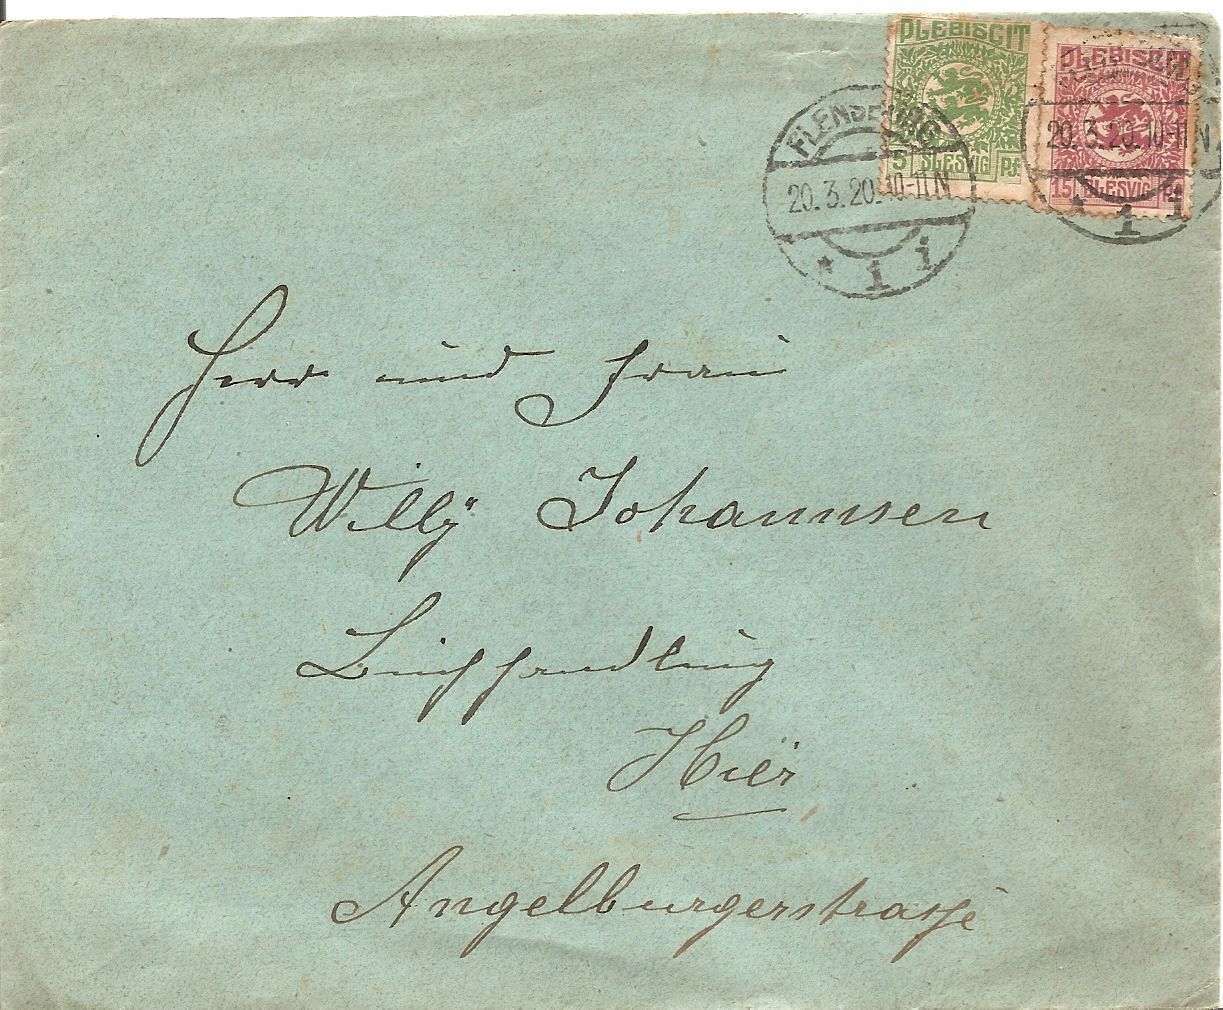 PLEBISCIT
5 SLESVIG Pf.
PLEBISCIT
15 SLESVIG Pf.
FLENSBURG
20.3.20.10-11N
* 1 i
20.3.20.10-11N
* 1 i
Herr und Frau
Willy Johannsen
Buchhandlung
Hier
Angelburgerstrasse